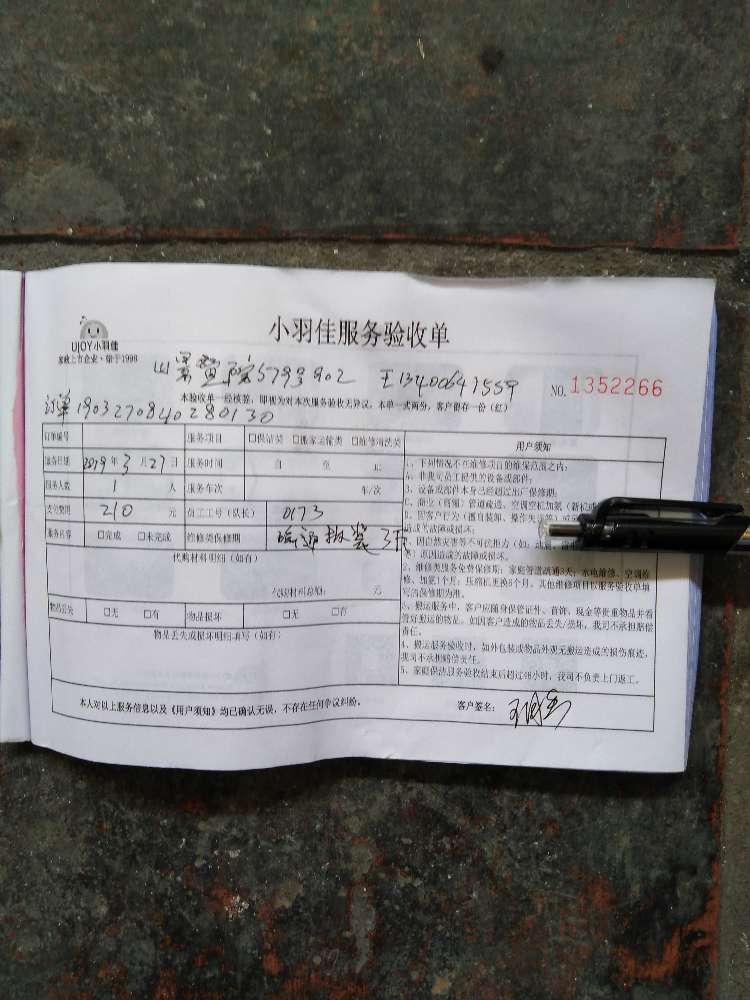 UJOY小羽佳
家政上市企业·始于1998
小羽佳服务验收单
5793902 王13400641559
NO. 1352266
本验收单一经核签，即视为对本次服务验收无异议。本单一式两份，客户留存一份（红）
订单190327084028013 0
订单编号 服务项目 □保洁类 □搬家运输类 □维修清洗类 用户须知
服务日期 2019年3月27日 服务时间 自 至 止
服务人数 1 人 服务车次 车/次
支付费用 210 元 员工工号（队长） 0173
服务内容 □完成 □未完成 维修类保修期
代购材料明细（如有）
代购材料总额： 元
物品丢失 □无 □有 物品损坏 □无 □有
物品丢失或损坏明细填写（如有）：
1、下列情况不在维修项目的维保范围之内：
A、非我司员工提供的设备或部件；
B、设备或部件本身已经超过出厂保修期；
造成的故障或损坏；
原因造成的故障或损坏。
2、维修类服务免费保修期：家庭管道疏通3天；水电维修、空调维
修、加氨1个月；压缩机更换6个月。其他维修项目以服务验收单填
写的保修期为准。
3、搬运服务中，客户应随身保管证件、首饰、现金等贵重物品并看
管好搬运的物品。如因客户造成的物品丢失/损坏，我司不承担赔偿
责任。
4、搬运服务验收时，如外包装或物品外观无搬运造成的损伤痕迹，
我司不承担赔偿责任。
5、家庭保洁服务验收结束后超过48小时，我司不负责上门返工。
本人对以上服务信息以及《用户须知》均已确认无误，不存在任何争议纠纷。 客户签名：